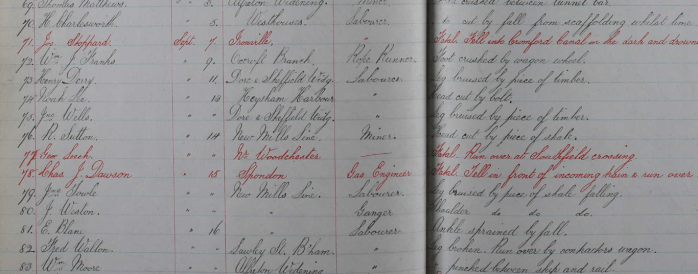 69. Thomas Matthews. " 3. Alfreton Widening. Miner. crushed between tunnel bar
70. H. Charlesworth. " 5. Westhouses. Labourer. do cut by fall from scaffolding whilst lime
71. Jos. Sheppard. Sept. 7. Ironville. " Fatal. Fell into Cromford Canal in the dark and drown
72. Wm. J. Franks. " 9. Oxcroft Branch. Rope Runner. Foot crushed by wagon wheel.
73. Henry Derry. " 11. Dore & Sheffield Widg. Labourer. Leg bruised by piece of timber.
74. Noah Lee. " 13 Heysham Harbour " Head cut by bolt.
75. Jno. Wells. " " Dore & Sheffield Widg. " Leg bruised by piece of timber.
76. R. Sutton. " 14 New Mills Line. Miner. Head cut by piece of shale.
77. " " Nr. Woodchester — Fatal. Run over at Southfield crossing.
78. Chas. J. Dawson " 15 Spondon Gas Engineer Fatal. Fell in front of incoming train & run over
79. Jno. Towle " " New Mills Line. Labourer Leg bruised by piece of shale falling.
80. J. Weston. " " " Ganger Shoulder do do do.
81. E. Blant " 16 " Labourer Ankle sprained by fall.
82. Fred Walton. " " Sawley St. B'ham. " Leg broken. Run over by contractors wagon.
83. Wm. Moore " " Alfreton Widening " pinched between skip and rail